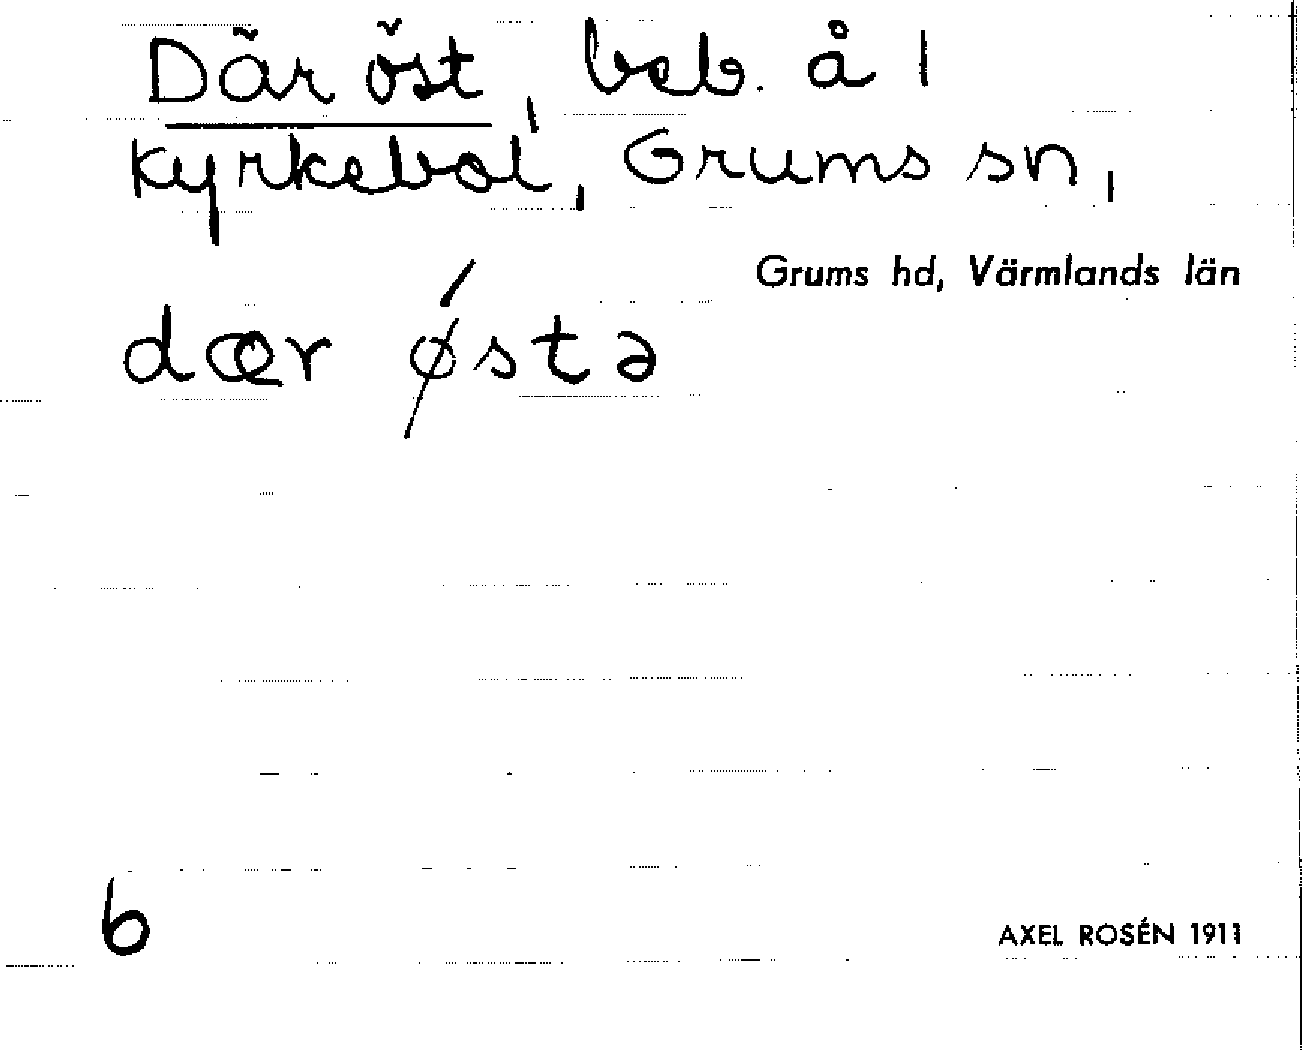 Där öst, beb. å 1
Kyrkebol, Grums sn,
Grums hd, Värmlands län
dær østə
6
AXEL ROSÉN 1911